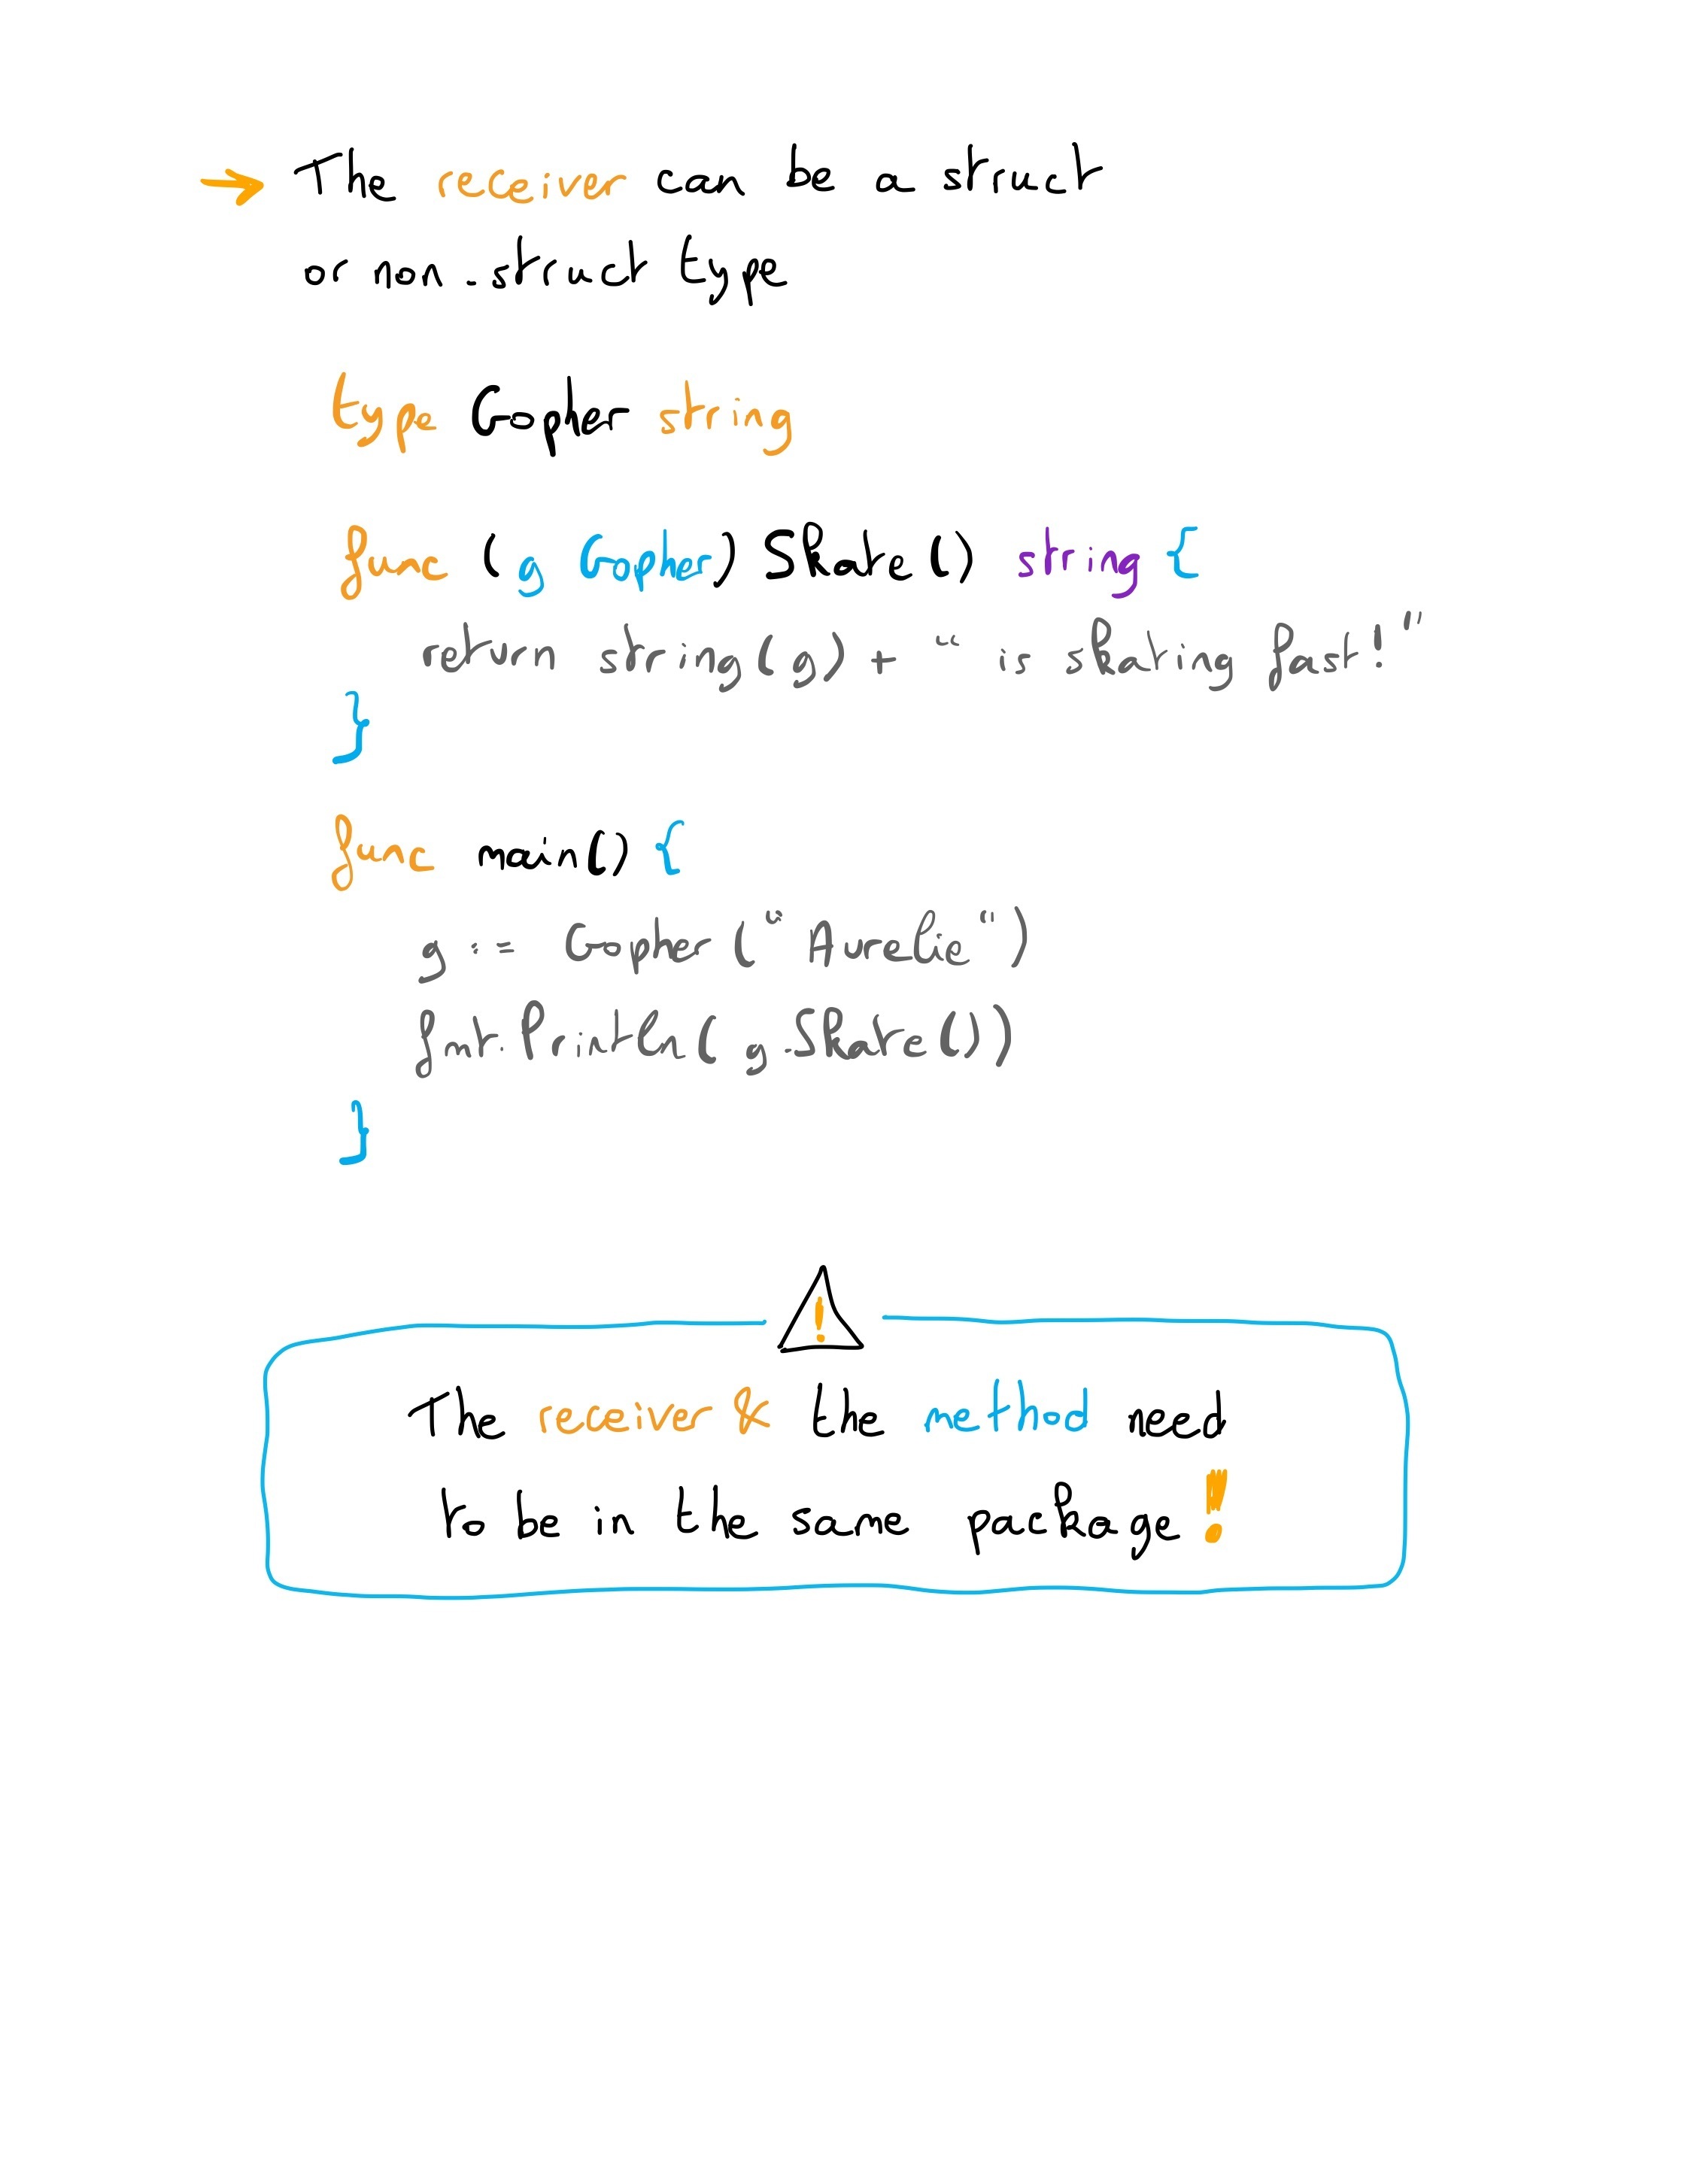 → The receiver can be a struct
or non-struct type
type Gopher string
func (g Gopher) Skate() string {
return string(g) + " is skating fast!"
}
func main() {
g := Gopher("Aurelie")
fmt.Println(g.Skate())
}
!
The receiver & the method need
to be in the same package!